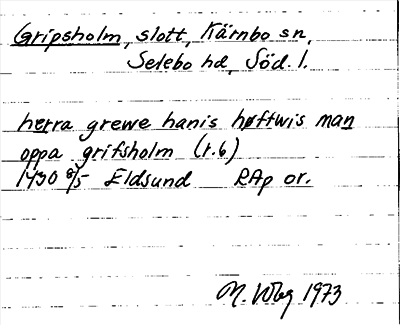 Gripsholm, slott, Kärnbo sn,
Selebo hd, Söd. l.
herra grewe hanis høftwis man
oppa grifsholm (r. 6)
1430 8/5 Eldsund RAp or.
1973